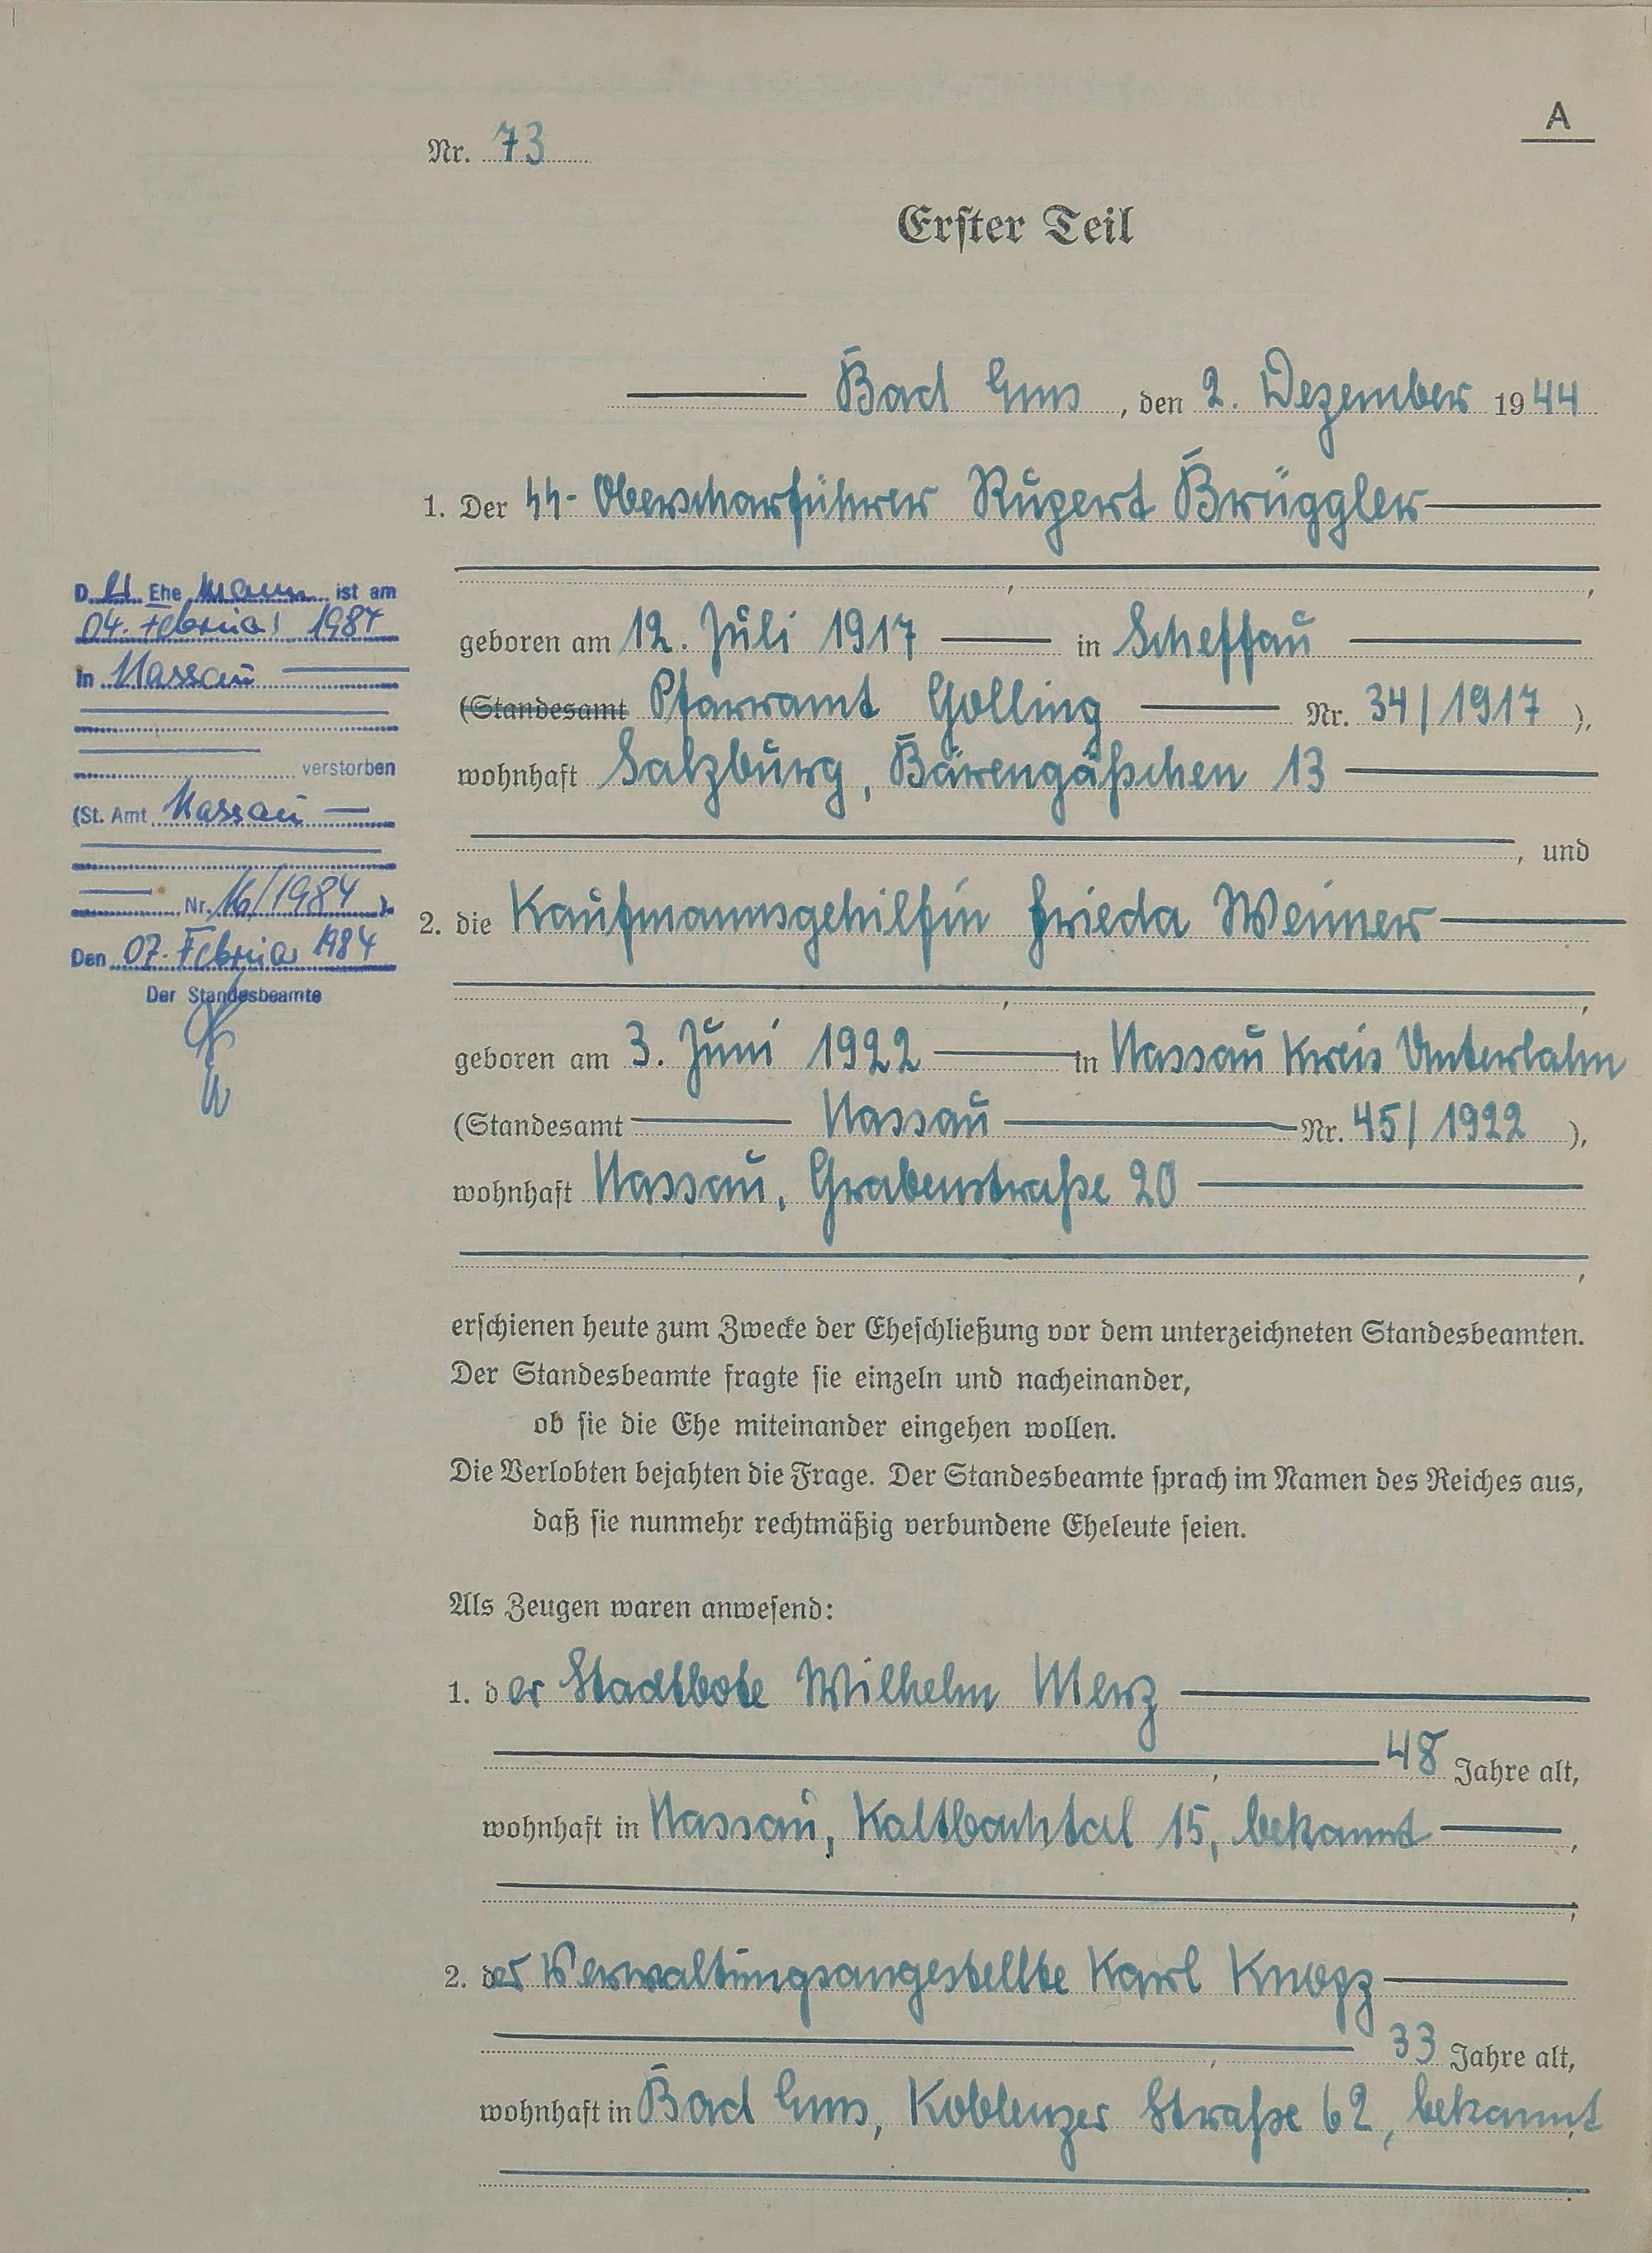 A
Nr. 73
Erster Teil
Bad Ems, den 2. Dezember 1944
1. Der SS-Oberscharführer Rupert Brüggler
,
geboren am 12. Juli 1917 in Scheffau
(Standesamt Pfarramt Golling Nr. 34/1917),
wohnhaft Salzburg, Bärengäßchen 13
, und
2. die Kaufmannsgehilfin Frieda Weiner
,
geboren am 3. Juni 1922 in Nassau Kreis Unterlahn
(Standesamt Nassau Nr. 45/1922),
wohnhaft Nassau, Grabenstraße 20
,
erschienen heute zum Zwecke der Eheschließung vor dem unterzeichneten Standesbeamten.
Der Standesbeamte fragte sie einzeln und nacheinander,
ob sie die Ehe miteinander eingehen wollen.
Die Verlobten bejahten die Frage. Der Standesbeamte sprach im Namen des Reiches aus,
daß sie nunmehr rechtmäßig verbundene Eheleute seien.
Als Zeugen waren anwesend:
1. der Stadtbote Wilhelm Merz
, 48 Jahre alt,
wohnhaft in Nassau, Kaltbachtal 15, bekannt,
;
2. der Verwaltungsangestellte Karl Knopp
, 33 Jahre alt,
wohnhaft in Bad Ems, Koblenzer Straße 62, bekannt
.
D. Ehe mann ist am
04. Februar 1984
in Nassau
verstorben
(St. Amt Nassau
Nr. 16/1984)
Den 07. Februar 1984
Der Standesbeamte